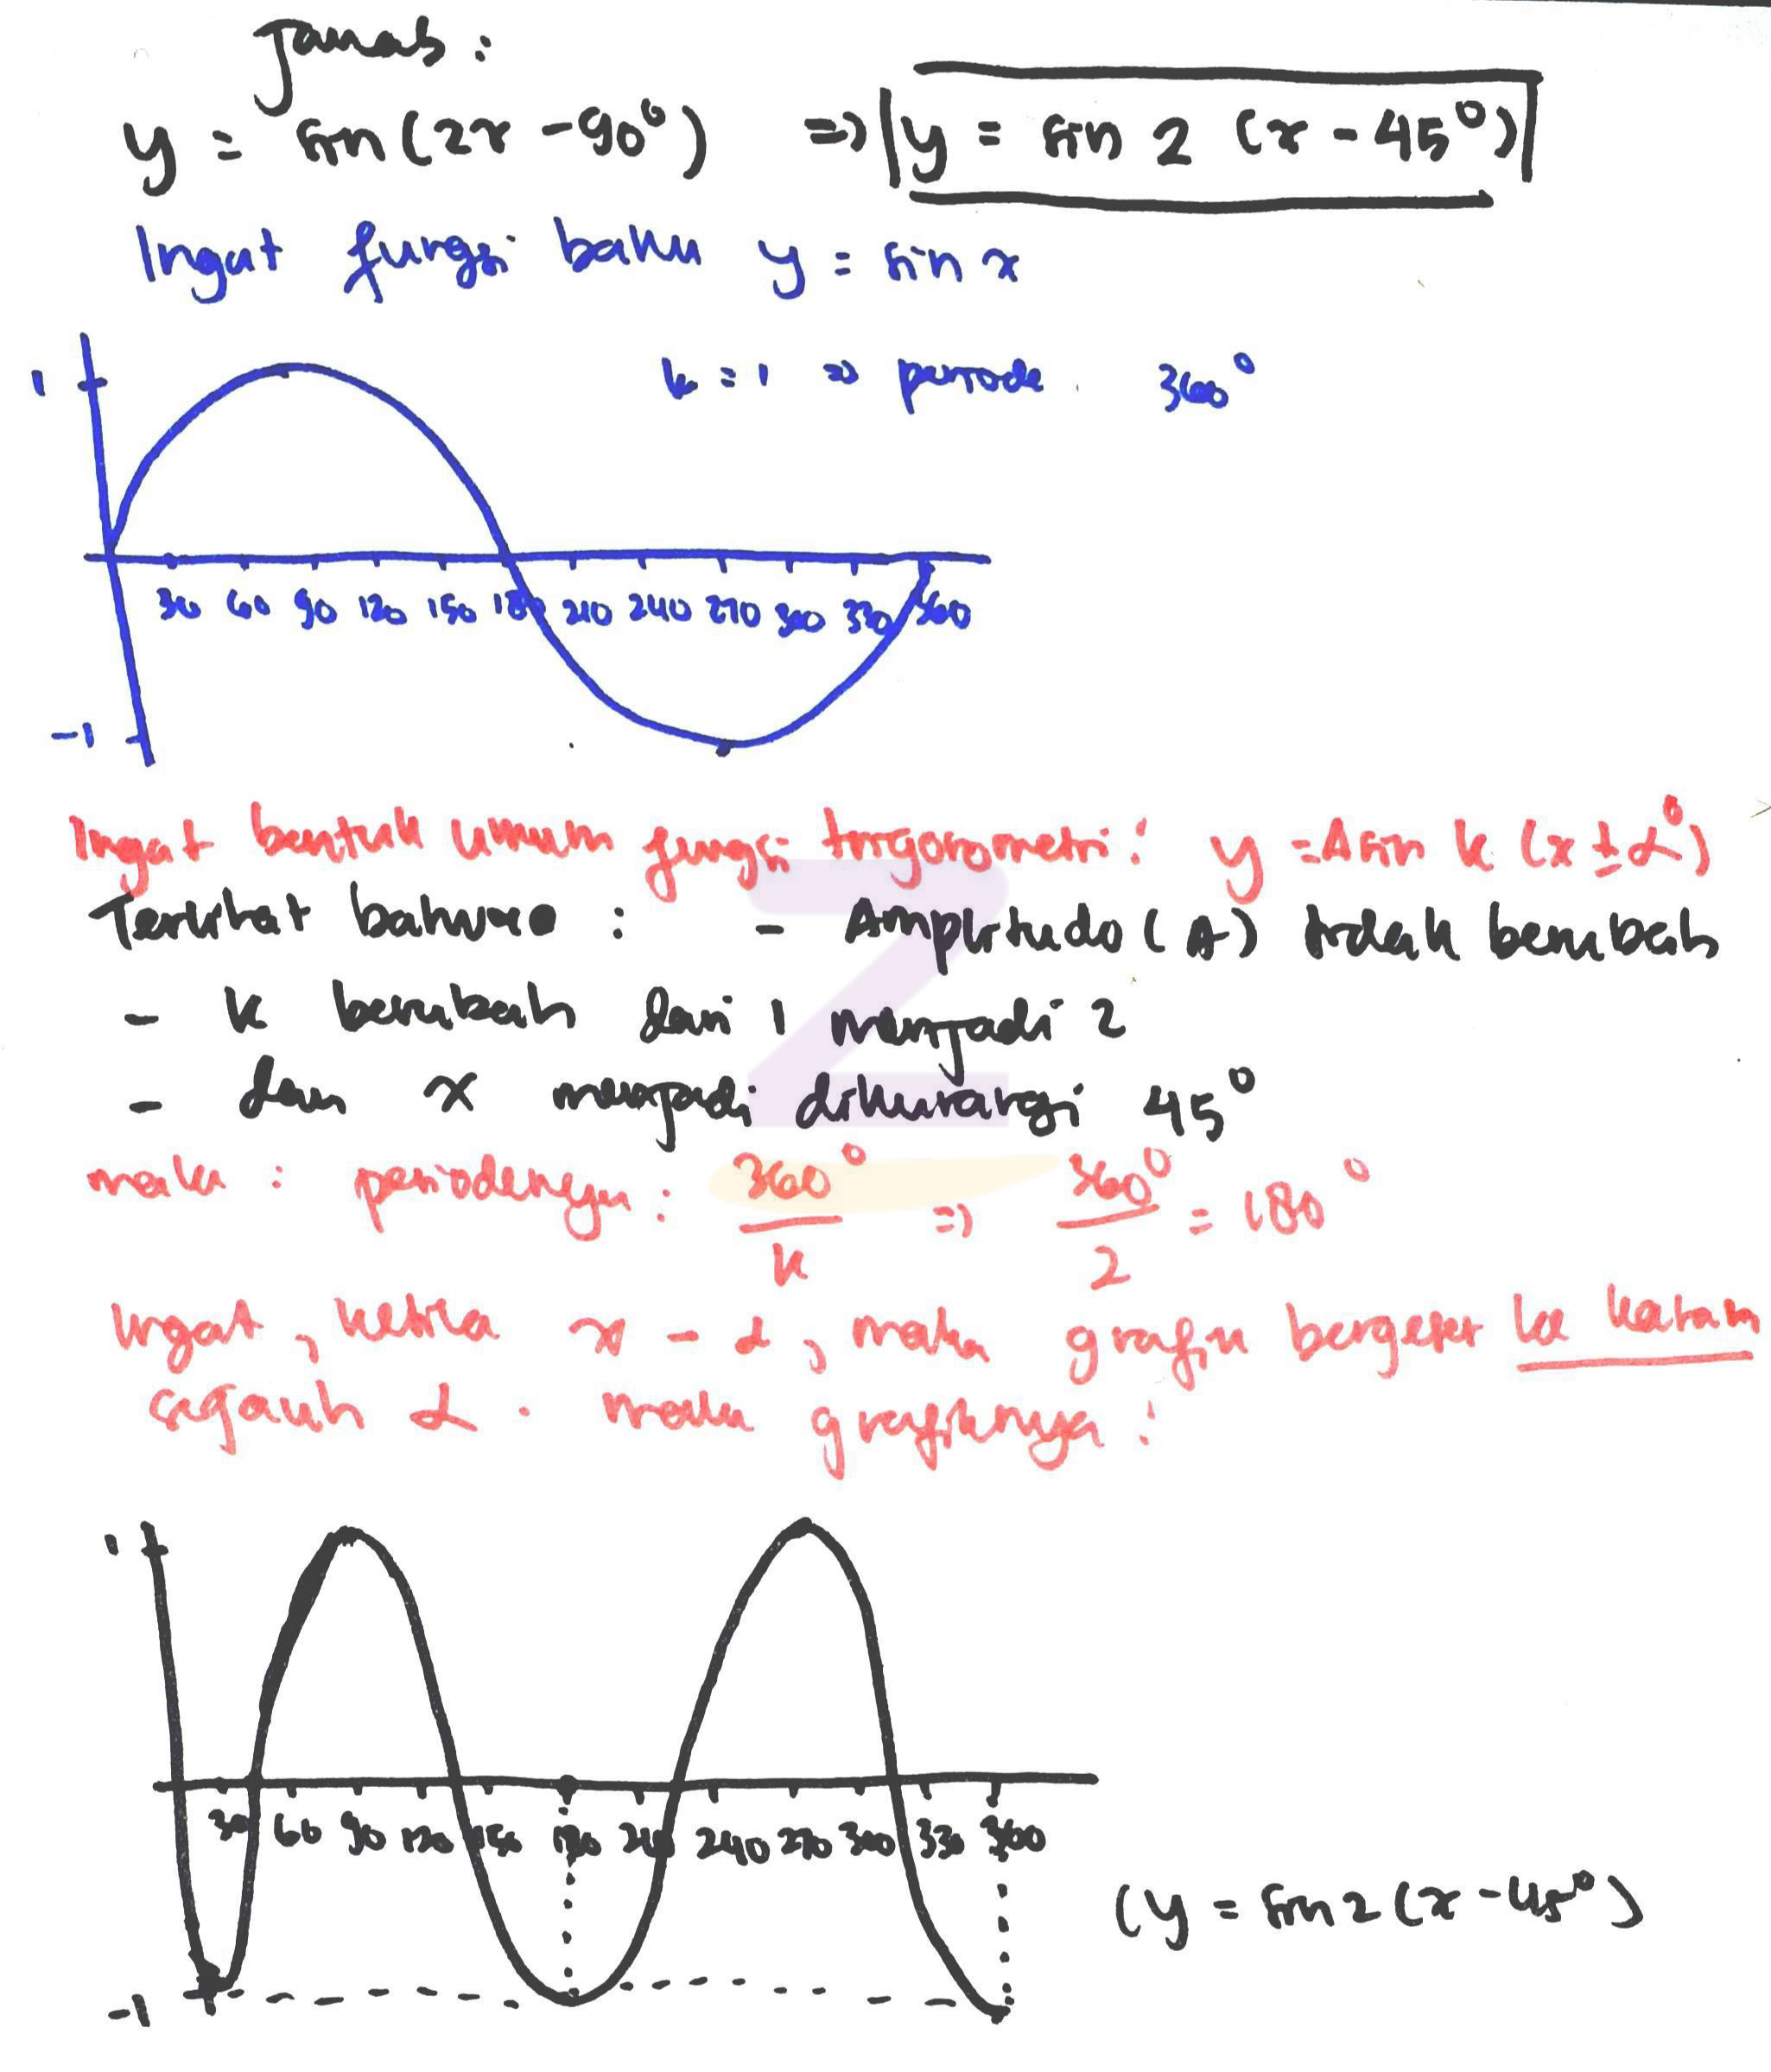 Jawab :
y = sin (2x - 90°) => y = sin 2 (x - 45°)
Ingat fungsi baku y = sin x
k = 1 => periode 360°
1
30 60 90 120 150 180 210 240 270 300 330 360
-1
Ingat bentuk umum fungsi trigonometri : y = A sin k (x ± α°)
Terlihat bahwa : - Amplitudo (A) tidak berubah
- k berubah dari 1 menjadi 2
- dan x menjadi dikurangi 45°
maka : periodenya : 360°/k => 360°/2 = 180°
Ingat, ketika x - α, maka grafik bergeser ke kanan
sejauh α. maka grafiknya :
1
30 60 90 120 150 180 210 240 270 300 330 360
(y = sin 2 (x - 45°)
-1